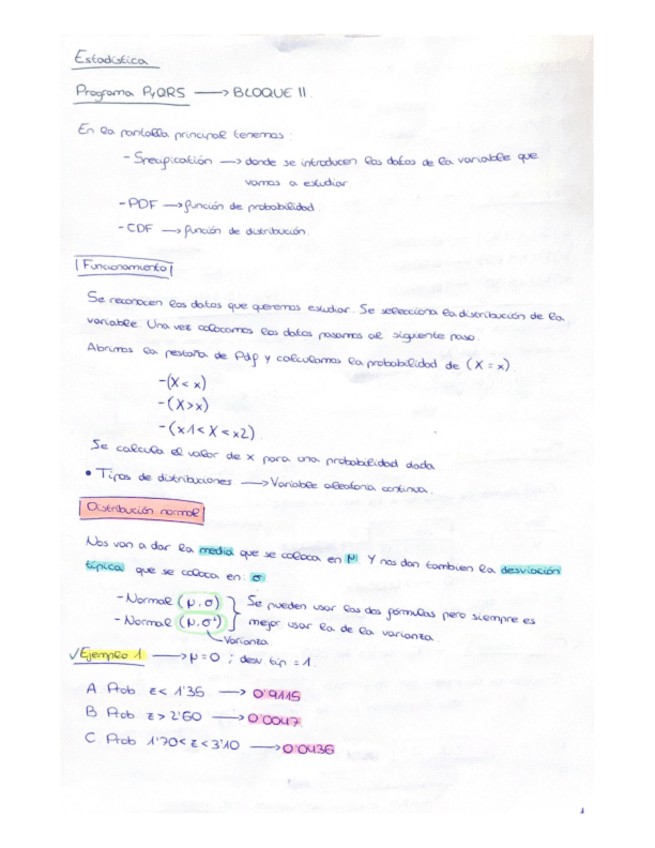 Estadística
Programa P,QRS → BLOQUE II.
En la pantalla principal tenemos:
- Especificatión → donde se introducen los datos de la variable que
vamos a estudiar
- PDF → función de probabilidad.
- CDF → función de distribución.
Funcionamiento
Se reconocen los datos que queremos estudiar. Se selecciona la distribución de la
variable. Una vez colocamos los datos pasamos al siguiente paso.
Abrimos la pestaña de Pdf y calculamos la probabilidad de (X = x).
-(X < x)
-(X > x)
-(x1 < X < x2).
Se calcula el valor de x para una probabilidad dada
• Tipos de distribuciones → Variable aleatoria continua.
Distribución normal
Nos van a dar la media que se coloca en μ. Y nos dan tambien la desviación
típica que se coloca en: σ
- Normal (μ, σ) } Se pueden usar las dos fórmulas pero siempre es
- Normal (μ, σ²) } mejor usar la de la varianza.
Varianza.
√Ejemplo 1 → μ = 0 ; desv tip = 1.
A. Prob z < 1'35 → 0'9115
B. Prob z > 2'60 → 0'0047
C. Prob 1'70 < z < 3'10 → 0'0436